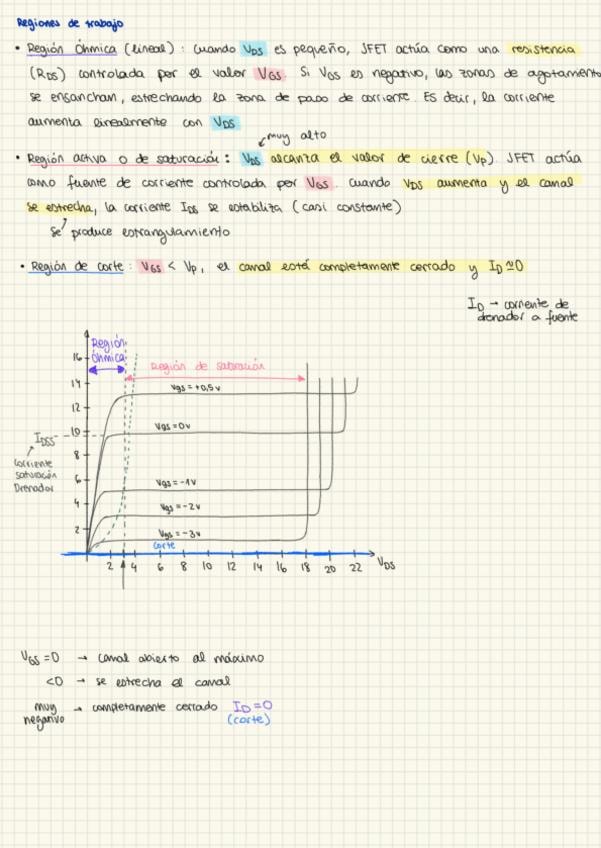 Regiones de trabajo
• Región Óhmica (lineal) : cuando VDS es pequeño, JFET actúa como una resistencia
(RDS) controlada por el valor VGS. Si VGS es negativo, las zonas de agotamiento
se ensanchan, estrechando la zona de paso de corriente. Es decir, la corriente
aumenta linealmente con VDS
muy alto
• Región activa o de saturación : VDS alcanza el valor de cierre (Vp). JFET actúa
como fuente de corriente controlada por VGS. cuando VDS aumenta y el canal
se estrecha, la corriente IDS se estabiliza (casi constante)
se produce estrangulamiento
• Región de corte : VGS < Vp, el canal está completamente cerrado y ID ≃ 0
ID → corriente de
drenador a fuente
Región
óhmica
Región de saturación
16
14
12
10
8
6
4
2
IDSS
corriente
saturación
Drenador
Vgs = +0,5 v
Vgs = 0 v
Vgs = -1 v
Vgs = -2 v
Vgs = -3 v
corte
2 4 6 8 10 12 14 16 18 20 22 VDS
VGS = 0 → canal abierto al máximo
<0 → se estrecha el canal
muy negativo → completamente cerrado ID = 0
(corte)